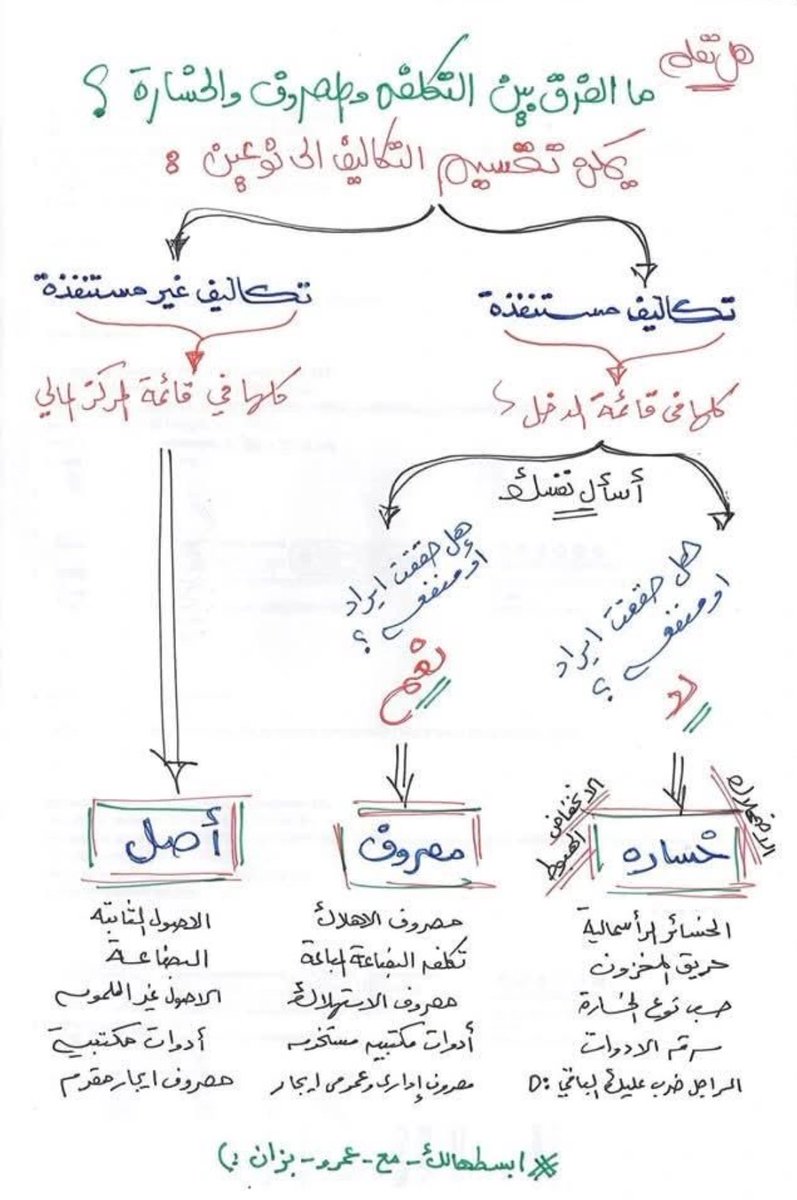 هل تعلم
ما الفرق بين التكلفه والمصروف والخسارة ؟
يمكن تقسيم التكاليف الى نوعين :
تكاليف مستنفذة
تكاليف غير مستنفذة
كلها في قائمة الدخل
كلها في قائمة المركز المالي
أسأل نفسك
هل حققت ايراد
او منفعه ؟
لا
هل حققت ايراد
او منفعه ؟
نعم
الانخفاض
الهبوط
الاضمحلال
خساره
مصروف
أصل
الخسائر الرأسمالية
حريق المخزون
حسب نوع الخسارة
سرقه الادوات
الراجل ضرب عليك الباقي :D
مصروف الاهلاك
تكلفه البضاعة المباعة
مصروف الاستهلاك
أدوات مكتبيه مستخدمه
مصروف إداري وعمومي ايجار
الاصول الثابته
البضاعة
الاصول غير الملموسه
أدوات مكتبية
مصروف ايجار مقدم
# ابسطهالك - مع - عمرو - بزان :)